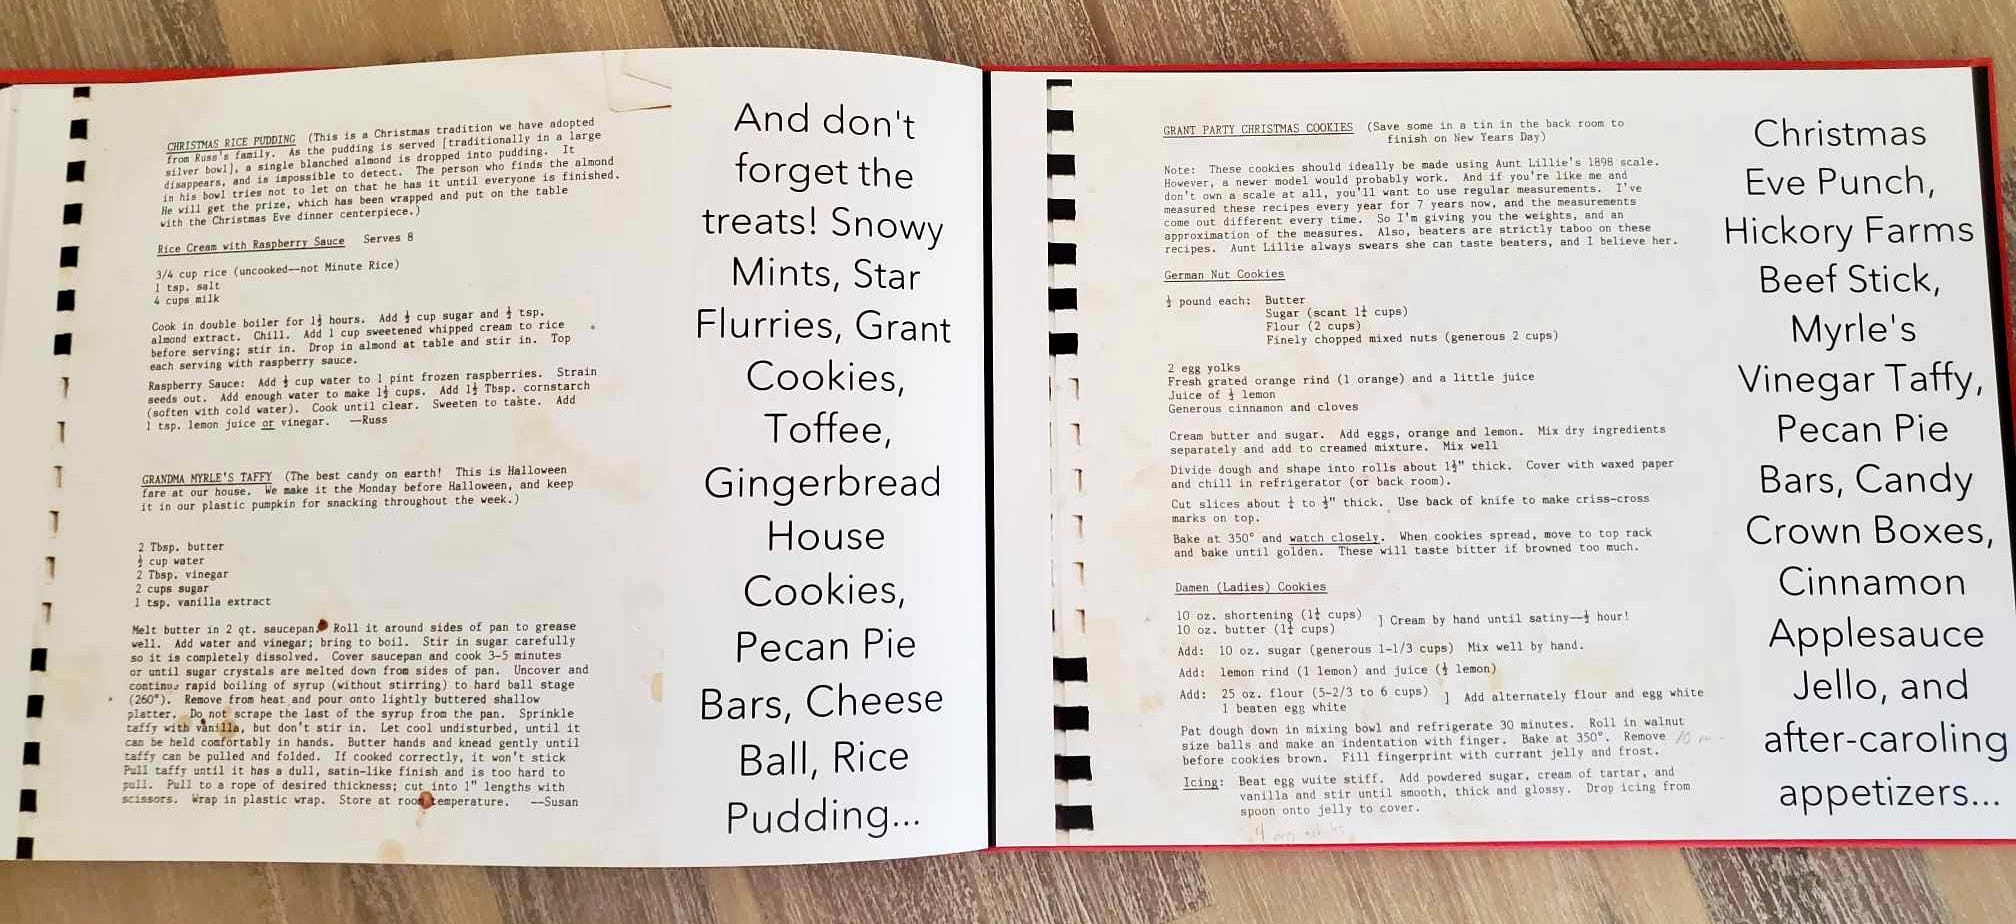 CHRISTMAS RICE PUDDING (This is a Christmas tradition we have adopted
from Russ's family. As the pudding is served [traditionally in a large
silver bowl], a single blanched almond is dropped into pudding. It
disappears, and is impossible to detect. The person who finds the almond
in his bowl tries not to let on that he has it until everyone is finished.
He will get the prize, which has been wrapped and put on the table
with the Christmas Eve dinner centerpiece.)
Rice Cream with Raspberry Sauce Serves 8
3/4 cup rice (uncooked—not Minute Rice)
1 tsp. salt
4 cups milk
Cook in double boiler for 1½ hours. Add ½ cup sugar and ½ tsp.
almond extract. Chill. Add 1 cup sweetened whipped cream to rice
before serving; stir in. Drop in almond at table and stir in. Top
each serving with raspberry sauce.
Raspberry Sauce: Add ½ cup water to 1 pint frozen raspberries. Strain
seeds out. Add enough water to make 1½ cups. Add 1½ Tbsp. cornstarch
(soften with cold water). Cook until clear. Sweeten to taste. Add
1 tsp. lemon juice or vinegar. —Russ
GRANDMA MYRLE'S TAFFY (The best candy on earth! This is Halloween
fare at our house. We make it the Monday before Halloween, and keep
it in our plastic pumpkin for snacking throughout the week.)
2 Tbsp. butter
½ cup water
2 Tbsp. vinegar
2 cups sugar
1 tsp. vanilla extract
Melt butter in 2 qt. saucepan. Roll it around sides of pan to grease
well. Add water and vinegar; bring to boil. Stir in sugar carefully
so it is completely dissolved. Cover saucepan and cook 3-5 minutes
or until sugar crystals are melted down from sides of pan. Uncover and
continue rapid boiling of syrup (without stirring) to hard ball stage
(260°). Remove from heat and pour onto lightly buttered shallow
platter. Do not scrape the last of the syrup from the pan. Sprinkle
taffy with vanilla, but don't stir in. Let cool undisturbed, until it
can be held comfortably in hands. Butter hands and knead gently until
taffy can be pulled and folded. If cooked correctly, it won't stick
Pull taffy until it has a dull, satin-like finish and is too hard to
pull. Pull to a rope of desired thickness; cut into 1" lengths with
scissors. Wrap in plastic wrap. Store at room temperature. --Susan
And don't
forget the
treats! Snowy
Mints, Star
Flurries, Grant
Cookies,
Toffee,
Gingerbread
House
Cookies,
Pecan Pie
Bars, Cheese
Ball, Rice
Pudding...
GRANT PARTY CHRISTMAS COOKIES (Save some in a tin in the back room to
finish on New Years Day)
Note: These cookies should ideally be made using Aunt Lillie's 1898 scale.
However, a newer model would probably work. And if you're like me and
don't own a scale at all, you'll want to use regular measurements. I've
measured these recipes every year for 7 years now, and the measurements
come out different every time. So I'm giving you the weights, and an
approximation of the measures. Also, beaters are strictly taboo on these
recipes. Aunt Lillie always swears she can taste beaters, and I believe her.
German Nut Cookies
½ pound each: Butter
Sugar (scant 1¼ cups)
Flour (2 cups)
Finely chopped mixed nuts (generous 2 cups)
2 egg yolks
Fresh grated orange rind (1 orange) and a little juice
Juice of ½ lemon
Generous cinnamon and cloves
Cream butter and sugar. Add eggs, orange and lemon. Mix dry ingredients
separately and add to creamed mixture. Mix well
Divide dough and shape into rolls about 1½" thick. Cover with waxed paper
and chill in refrigerator (or back room).
Cut slices about ¼ to ½" thick. Use back of knife to make criss-cross
marks on top.
Bake at 350° and watch closely. When cookies spread, move to top rack
and bake until golden. These will taste bitter if browned too much.
Damen (Ladies) Cookies
10 oz. shortening (1¼ cups) ] Cream by hand until satiny--½ hour!
10 oz. butter (1¼ cups)
Add: 10 oz. sugar (generous 1-1/3 cups) Mix well by hand.
Add: lemon rind (1 lemon) and juice (½ lemon)
Add: 25 oz. flour (5-2/3 to 6 cups) ] Add alternately flour and egg white
1 beaten egg white
Pat dough down in mixing bowl and refrigerate 30 minutes. Roll in walnut
size balls and make an indentation with finger. Bake at 350°. Remove
before cookies brown. Fill fingerprint with currant jelly and frost.
Icing: Beat egg wuite stiff. Add powdered sugar, cream of tartar, and
vanilla and stir until smooth, thick and glossy. Drop icing from
spoon onto jelly to cover.
Christmas
Eve Punch,
Hickory Farms
Beef Stick,
Myrle's
Vinegar Taffy,
Pecan Pie
Bars, Candy
Crown Boxes,
Cinnamon
Applesauce
Jello, and
after-caroling
appetizers...